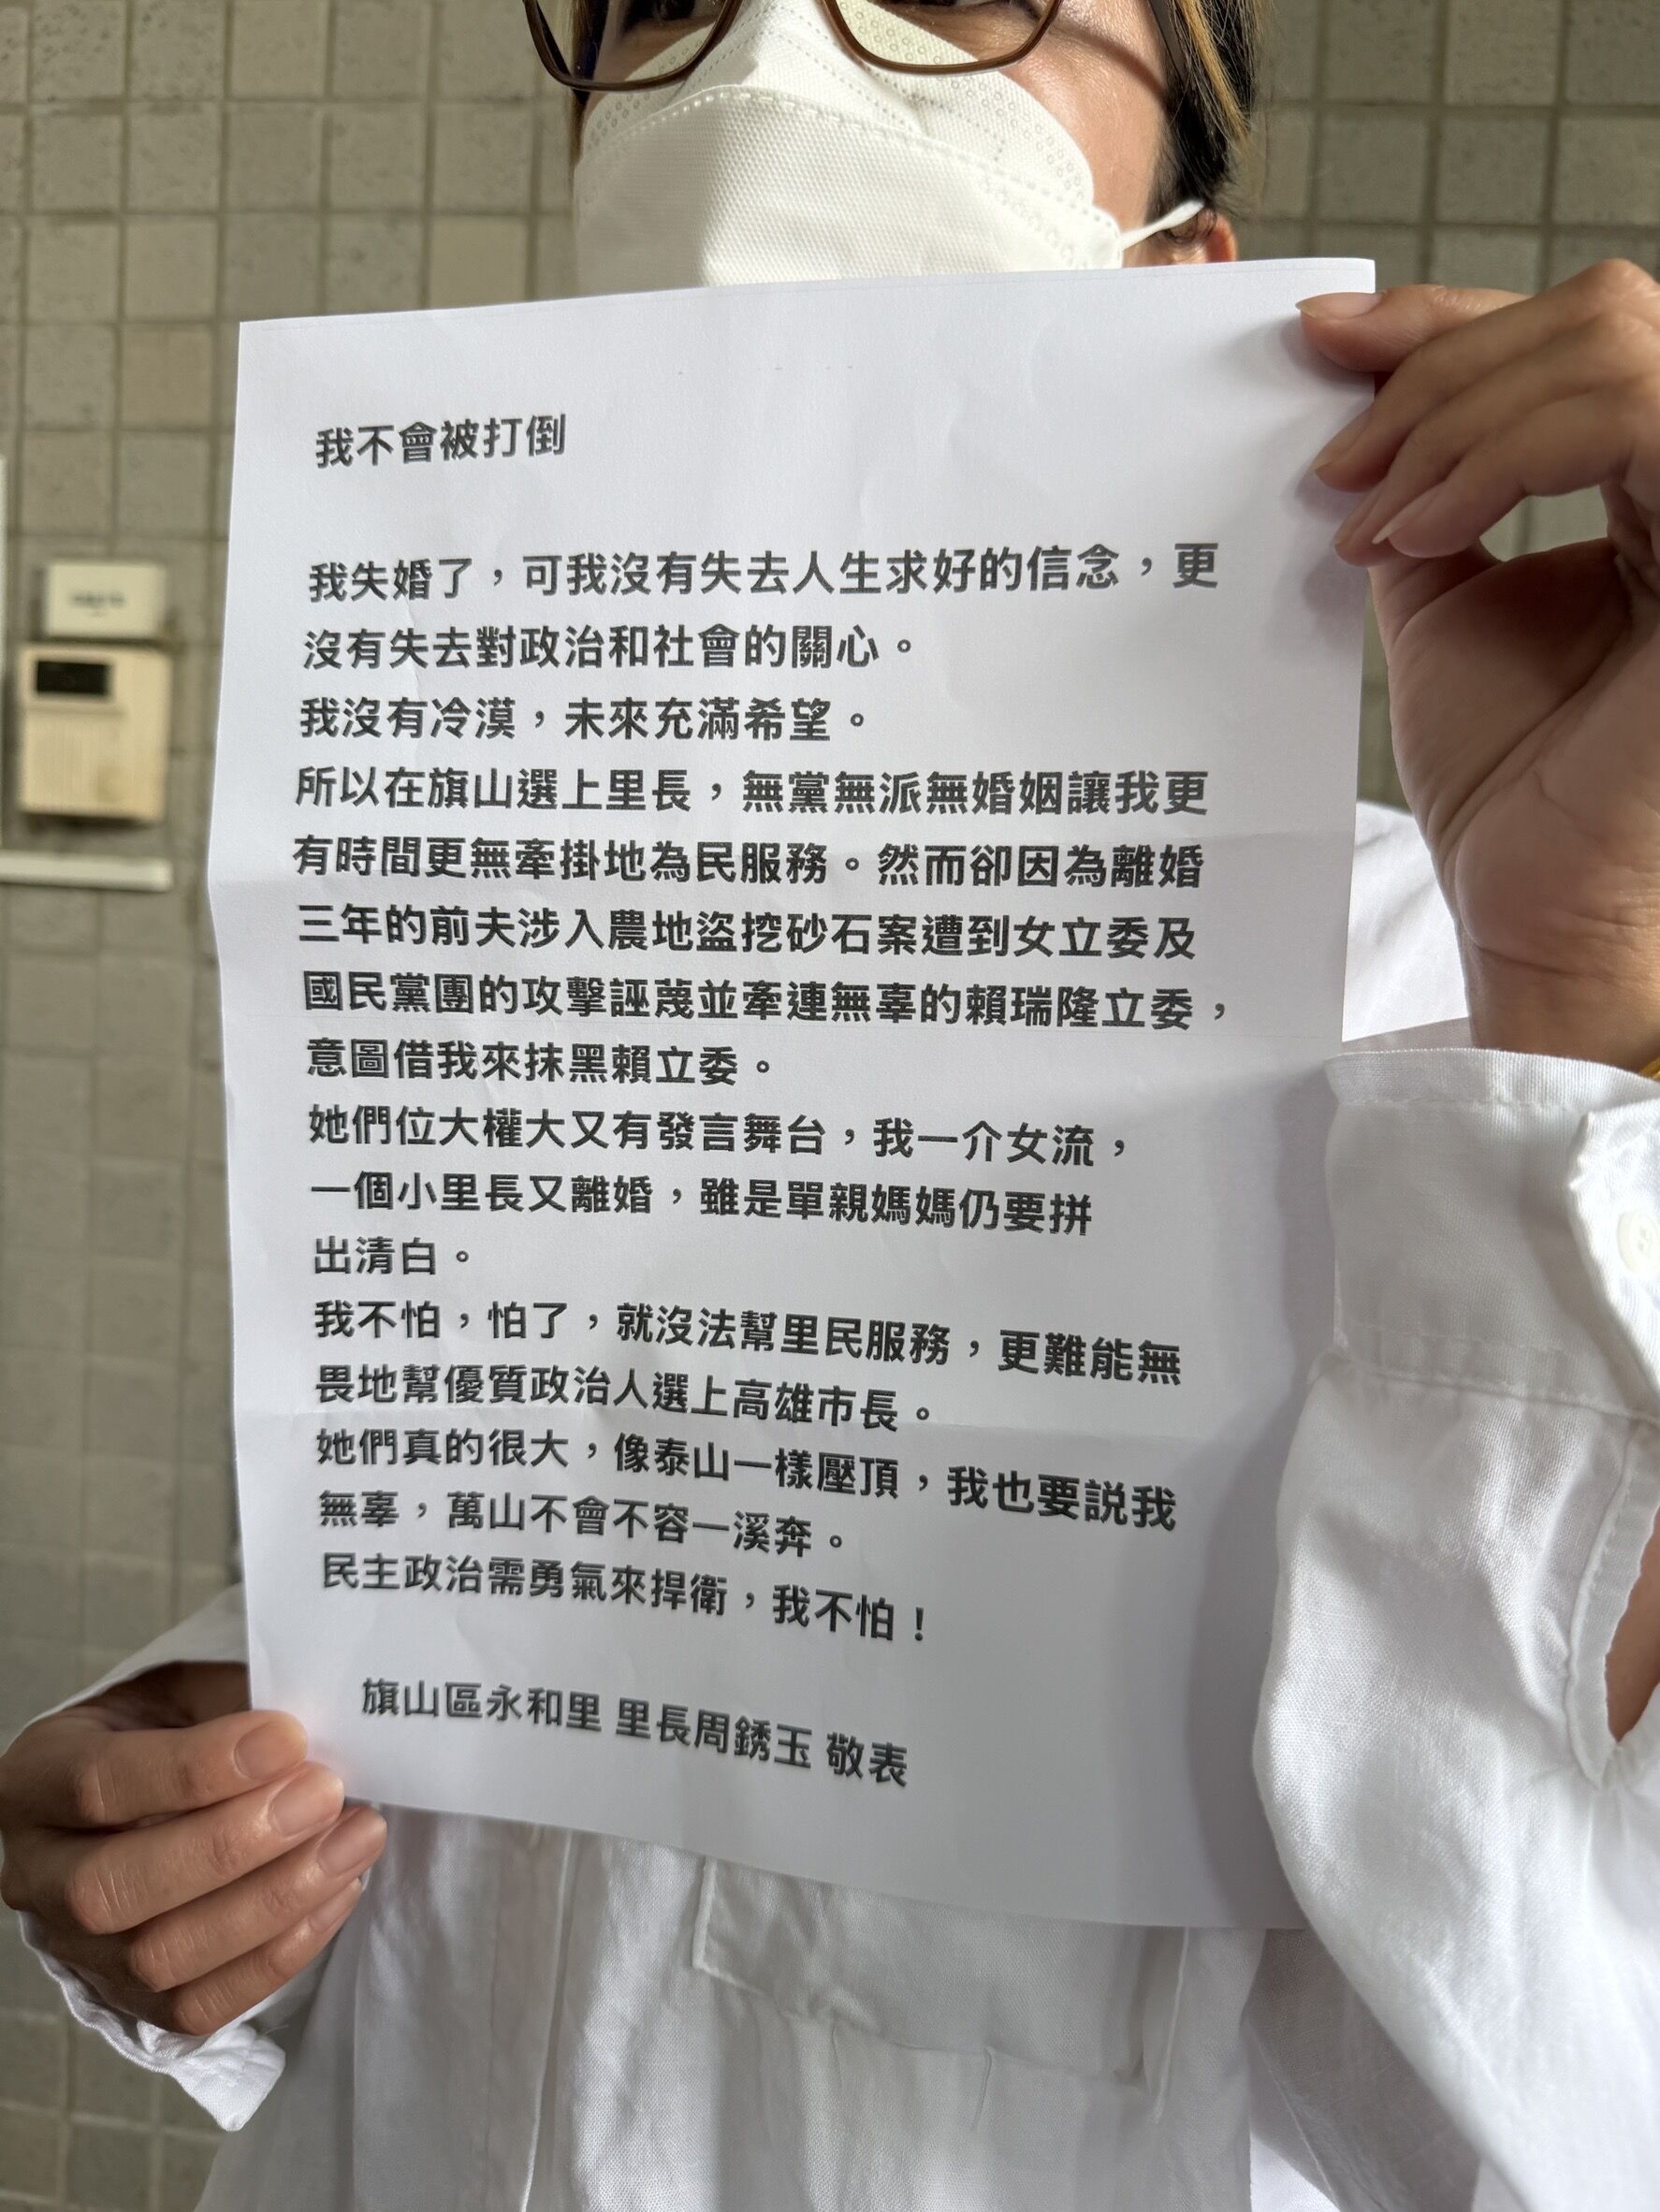 我不會被打倒
我失婚了，可我沒有失去人生求好的信念，更
沒有失去對政治和社會的關心。
我沒有冷漠，未來充滿希望。
所以在旗山選上里長，無黨無派無婚姻讓我更
有時間更無牽掛地為民服務。然而卻因為離婚
三年的前夫涉入農地盜挖砂石案遭到女立委及
國民黨團的攻擊誣蔑並牽連無辜的賴瑞隆立委，
意圖借我來抹黑賴立委。
她們位大權大又有發言舞台，我一介女流，
一個小里長又離婚，雖是單親媽媽仍要拼
出清白。
我不怕，怕了，就沒法幫里民服務，更難能無
畏地幫優質政治人選上高雄市長。
她們真的很大，像泰山一樣壓頂，我也要説我
無辜，萬山不會不容一溪奔。
民主政治需勇氣來捍衛，我不怕！
旗山區永和里 里長周銹玉 敬表